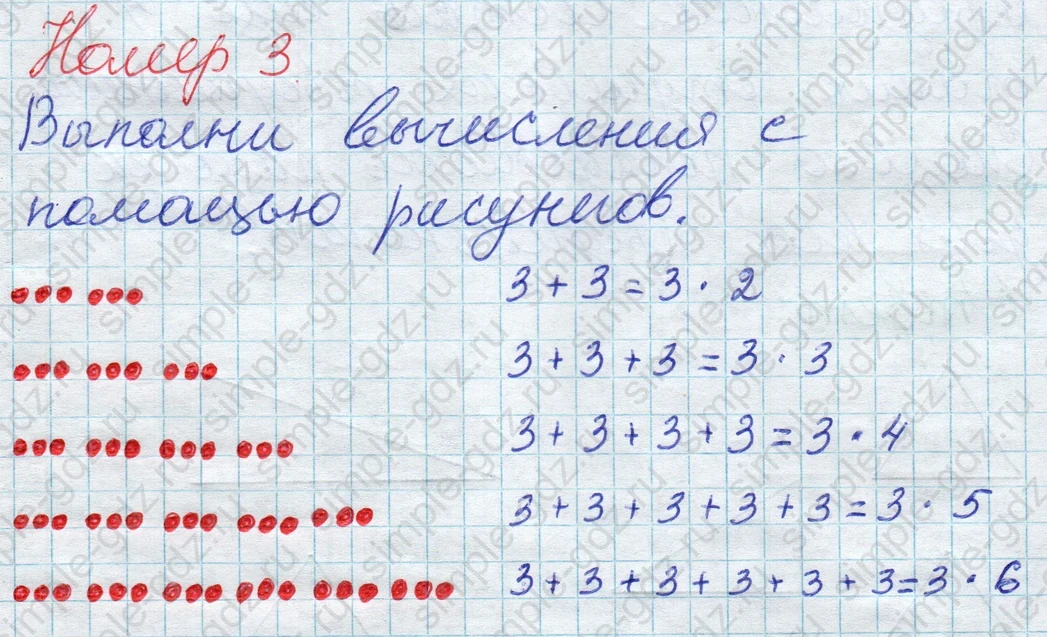 Номер 3
Выполни вычисления с
помощью рисунков.
3 + 3 = 3 · 2
3 + 3 + 3 = 3 · 3
3 + 3 + 3 + 3 = 3 · 4
3 + 3 + 3 + 3 + 3 = 3 · 5
3 + 3 + 3 + 3 + 3 + 3 = 3 · 6
simple-gdz.ru